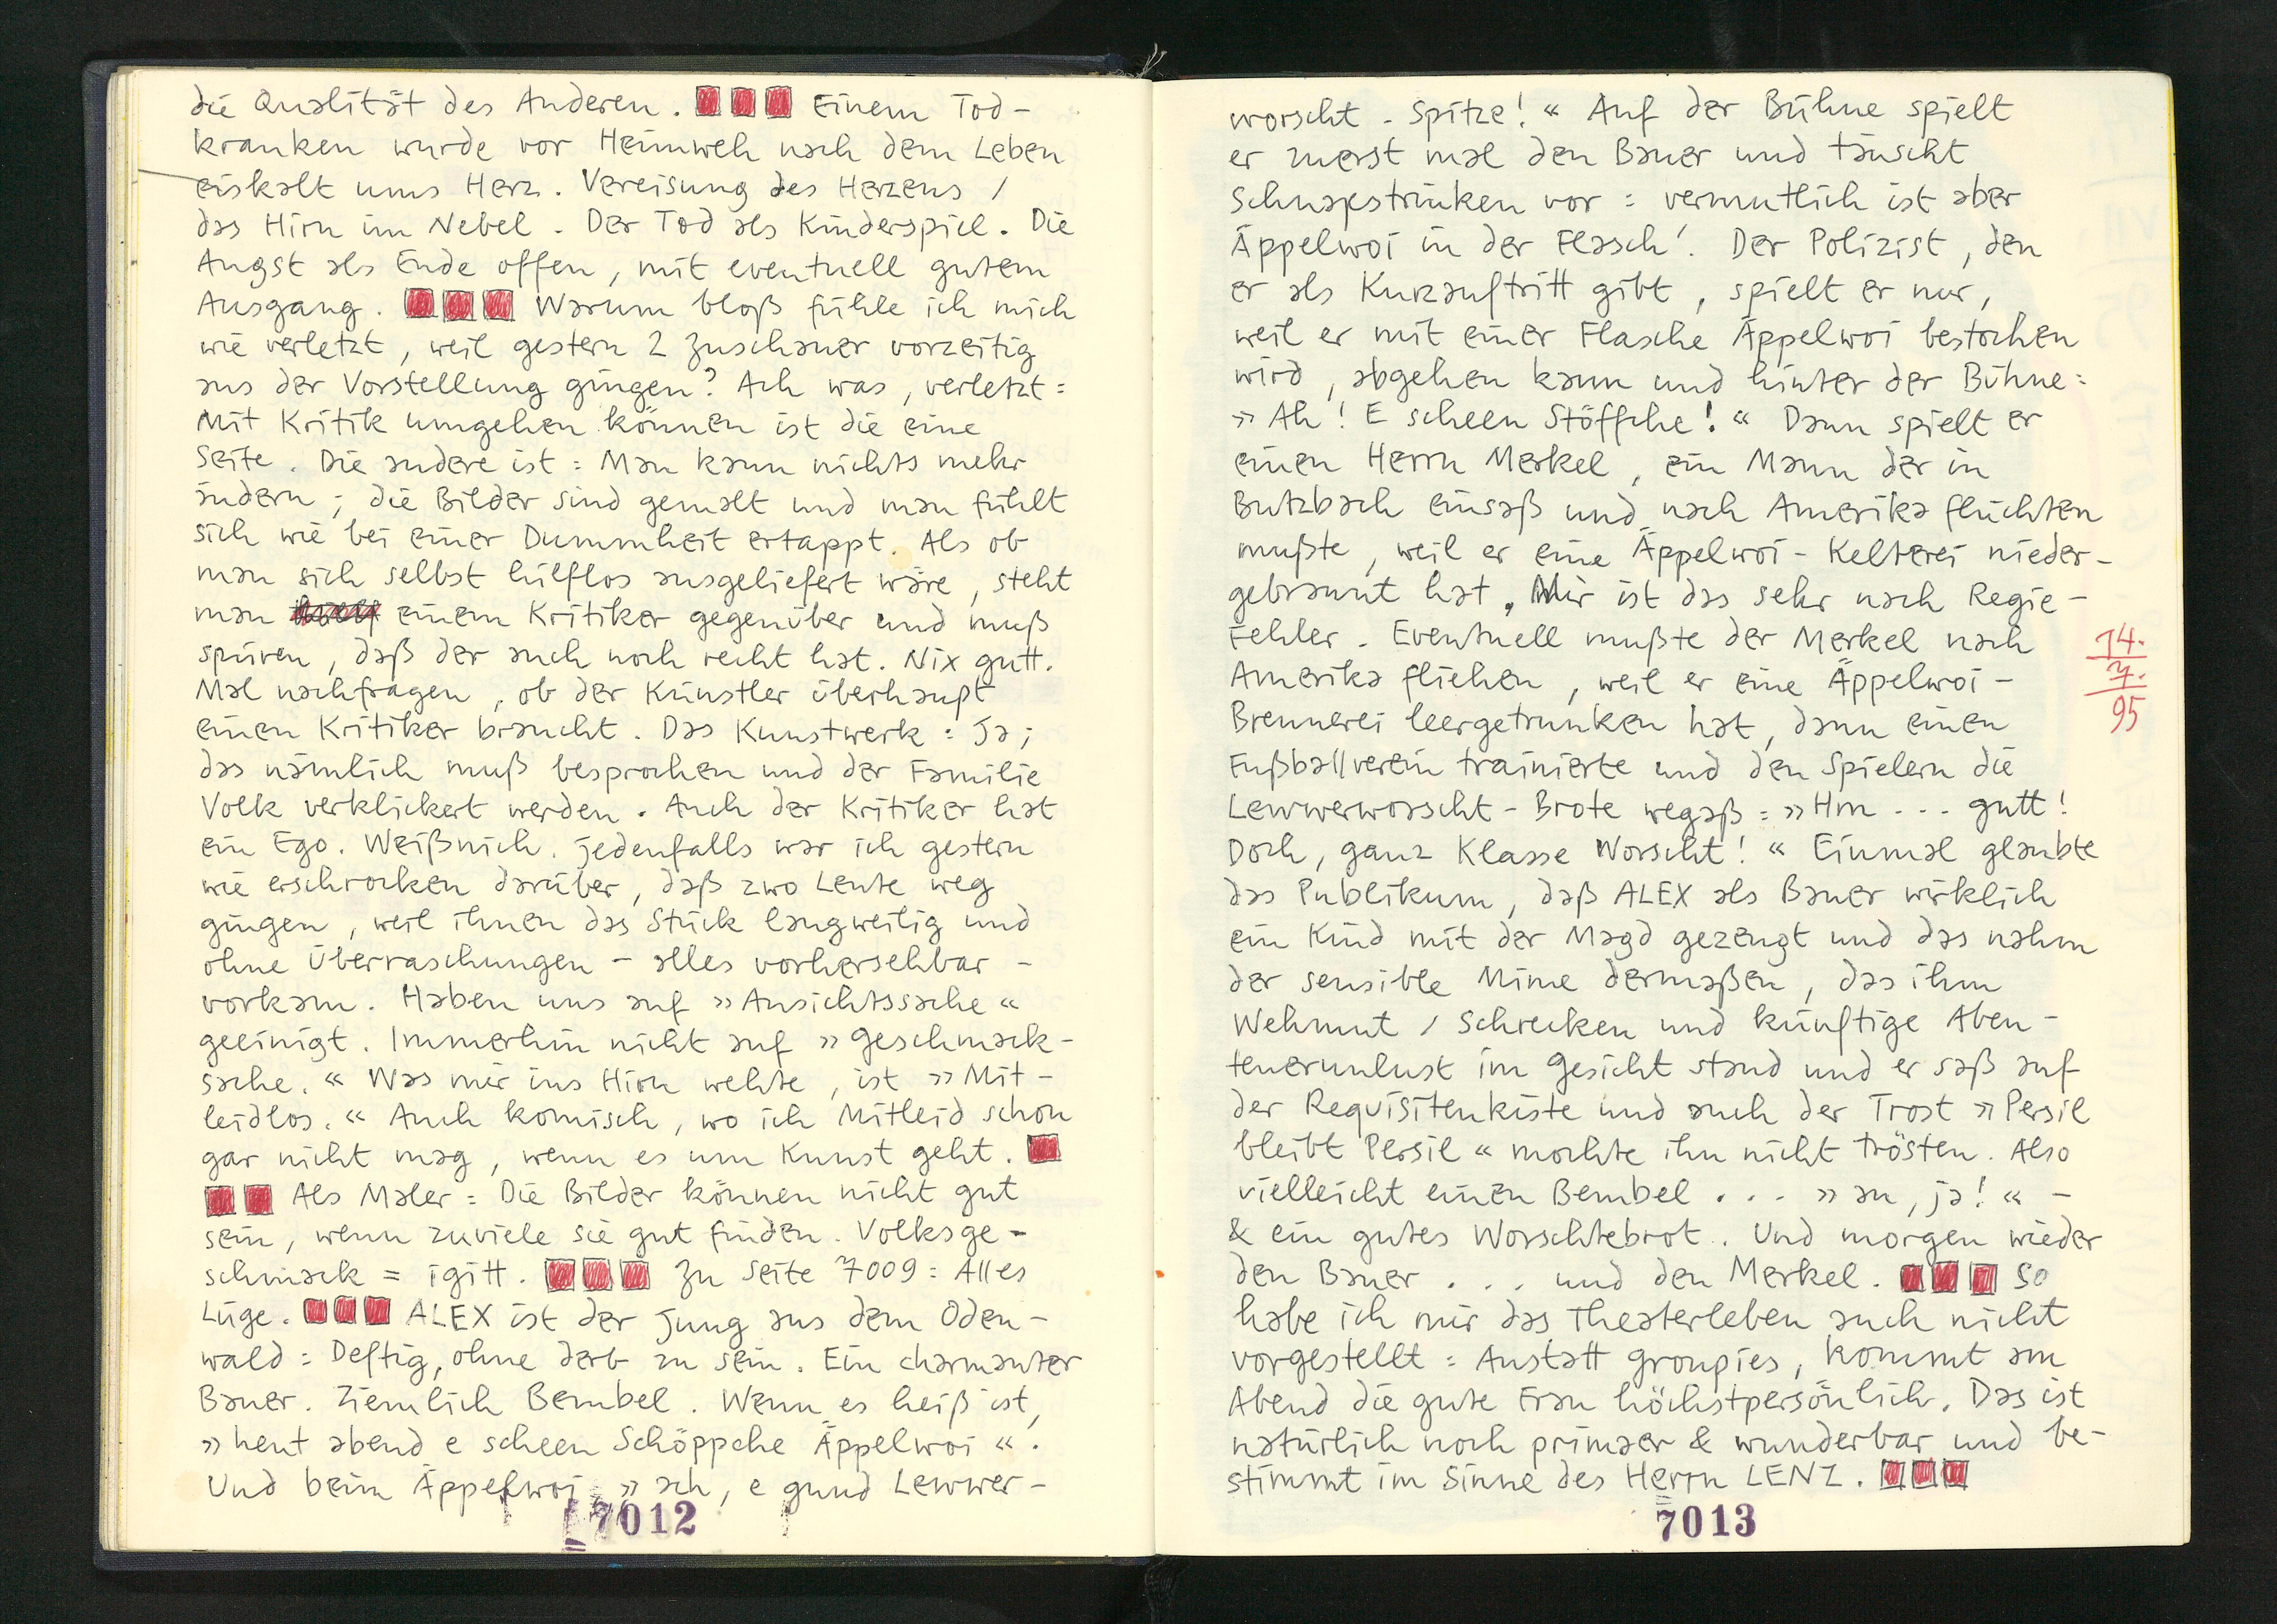 die Qualität des Anderen. Einem Tod-
kranken wurde vor Heimweh nach dem Leben
eiskalt ums Herz. Vereisung des Herzens /
das Hirn im Nebel. Der Tod als Kinderspiel. Die
Angst als Ende offen, mit eventuell gutem
Ausgang. Warum bloß fühle ich mich
wie verletzt, weil gestern 2 Zuschauer vorzeitig
aus der Vorstellung gingen? Ach was, verletzt:
Mit Kritik umgehen können ist die eine
Seite. Die andere ist: Man kann nichts mehr
ändern; die Bilder sind gemalt und man fühlt
sich wie bei einer Dummheit ertappt. Als ob
man sich selbst hilflos ausgeliefert wäre, steht
man einem Kritiker gegenüber und muß
spüren, daß der auch noch recht hat. Nix gutt.
Mal nachfragen, ob der Künstler überhaupt
einen Kritiker braucht. Das Kunstwerk: Ja;
das nämlich muß besprochen und der Familie
Volk verklickert werden. Auch der Kritiker hat
ein Ego. Weißnich. Jedenfalls war ich gestern
wie erschrocken darüber, daß zwo Leute weg
gingen, weil ihnen das Stück langweilig und
ohne Überraschungen - alles vorhersehbar -
vorkam. Haben uns auf »Ansichtssache«
geeinigt. Immerhin nicht auf »Geschmack-
sache.« Was mir ins Hirn wehte, ist »Mit-
leidlos.« Auch komisch, wo ich Mitleid schon
gar nicht mag, wenn es um Kunst geht.
Als Maler: Die Bilder können nicht gut
sein, wenn zuviele sie gut finden. Volksge-
schmack = igitt. Zu Seite 7009: Alles
Lüge. ALEX ist der Jung aus dem Oden-
wald: Deftig, ohne derb zu sein. Ein charmanter
Bauer. Ziemlich Bembel. Wenn es heiß ist,
»heut abend e scheen Schöppche Äppelwoi«.
Und beim Äppelwoi, »ach, e gund Lewwer-
7012
worscht. Spitze!« Auf der Bühne spielt
er zuerst mal den Bauer und täuscht
Schnapstrinken vor: vermutlich ist aber
Äppelwoi in der Flasch! Der Polizist, den
er als Kurzauftritt gibt, spielt er nur,
weil er mit einer Flasche Äppelwoi bestochen
wird, abgehen kann und hinter der Bühne:
»Ah! E scheen Stöffche!« Dann spielt er
einen Herrn Merkel, ein Mann der in
Butzbach einsaß und nach Amerika flüchten
mußte, weil er eine Äppelwoi-Kelterei nieder-
gebrannt hat. Mir ist das sehr nach Regie-
Fehler. Eventuell mußte der Merkel nach
Amerika fliehen, weil er eine Äppelwoi-
Brennerei leergetrunken hat, dann einen
Fußballverein trainierte und den Spielern die
Lewwerworscht-Brote wegaß: »Hm... gutt!
Doch, ganz Klasse Worscht!« Einmal glaubte
das Publikum, daß ALEX als Bauer wirklich
ein Kind mit der Magd gezeugt und das nahm
der sensible Mime dermaßen, das ihm
Wehmut / Schrecken und künftige Aben-
teuerunlust im Gesicht stand und er saß auf
der Requisitenkiste und auch der Trost »Persil
bleibt Persil« mochte ihn nicht trösten. Also
vielleicht einen Bembel... »au, ja!« -
& ein gutes Worschtebrot. Und morgen wieder
den Bauer... und den Merkel. So
habe ich mir das Theaterleben auch nicht
vorgestellt: Anstatt groupies, kommt am
Abend die gute Frau höchstpersönlich. Das ist
natürlich noch primaer & wunderbar und be-
stimmt im Sinne des Herrn LENZ.
14.
7.
95
7013